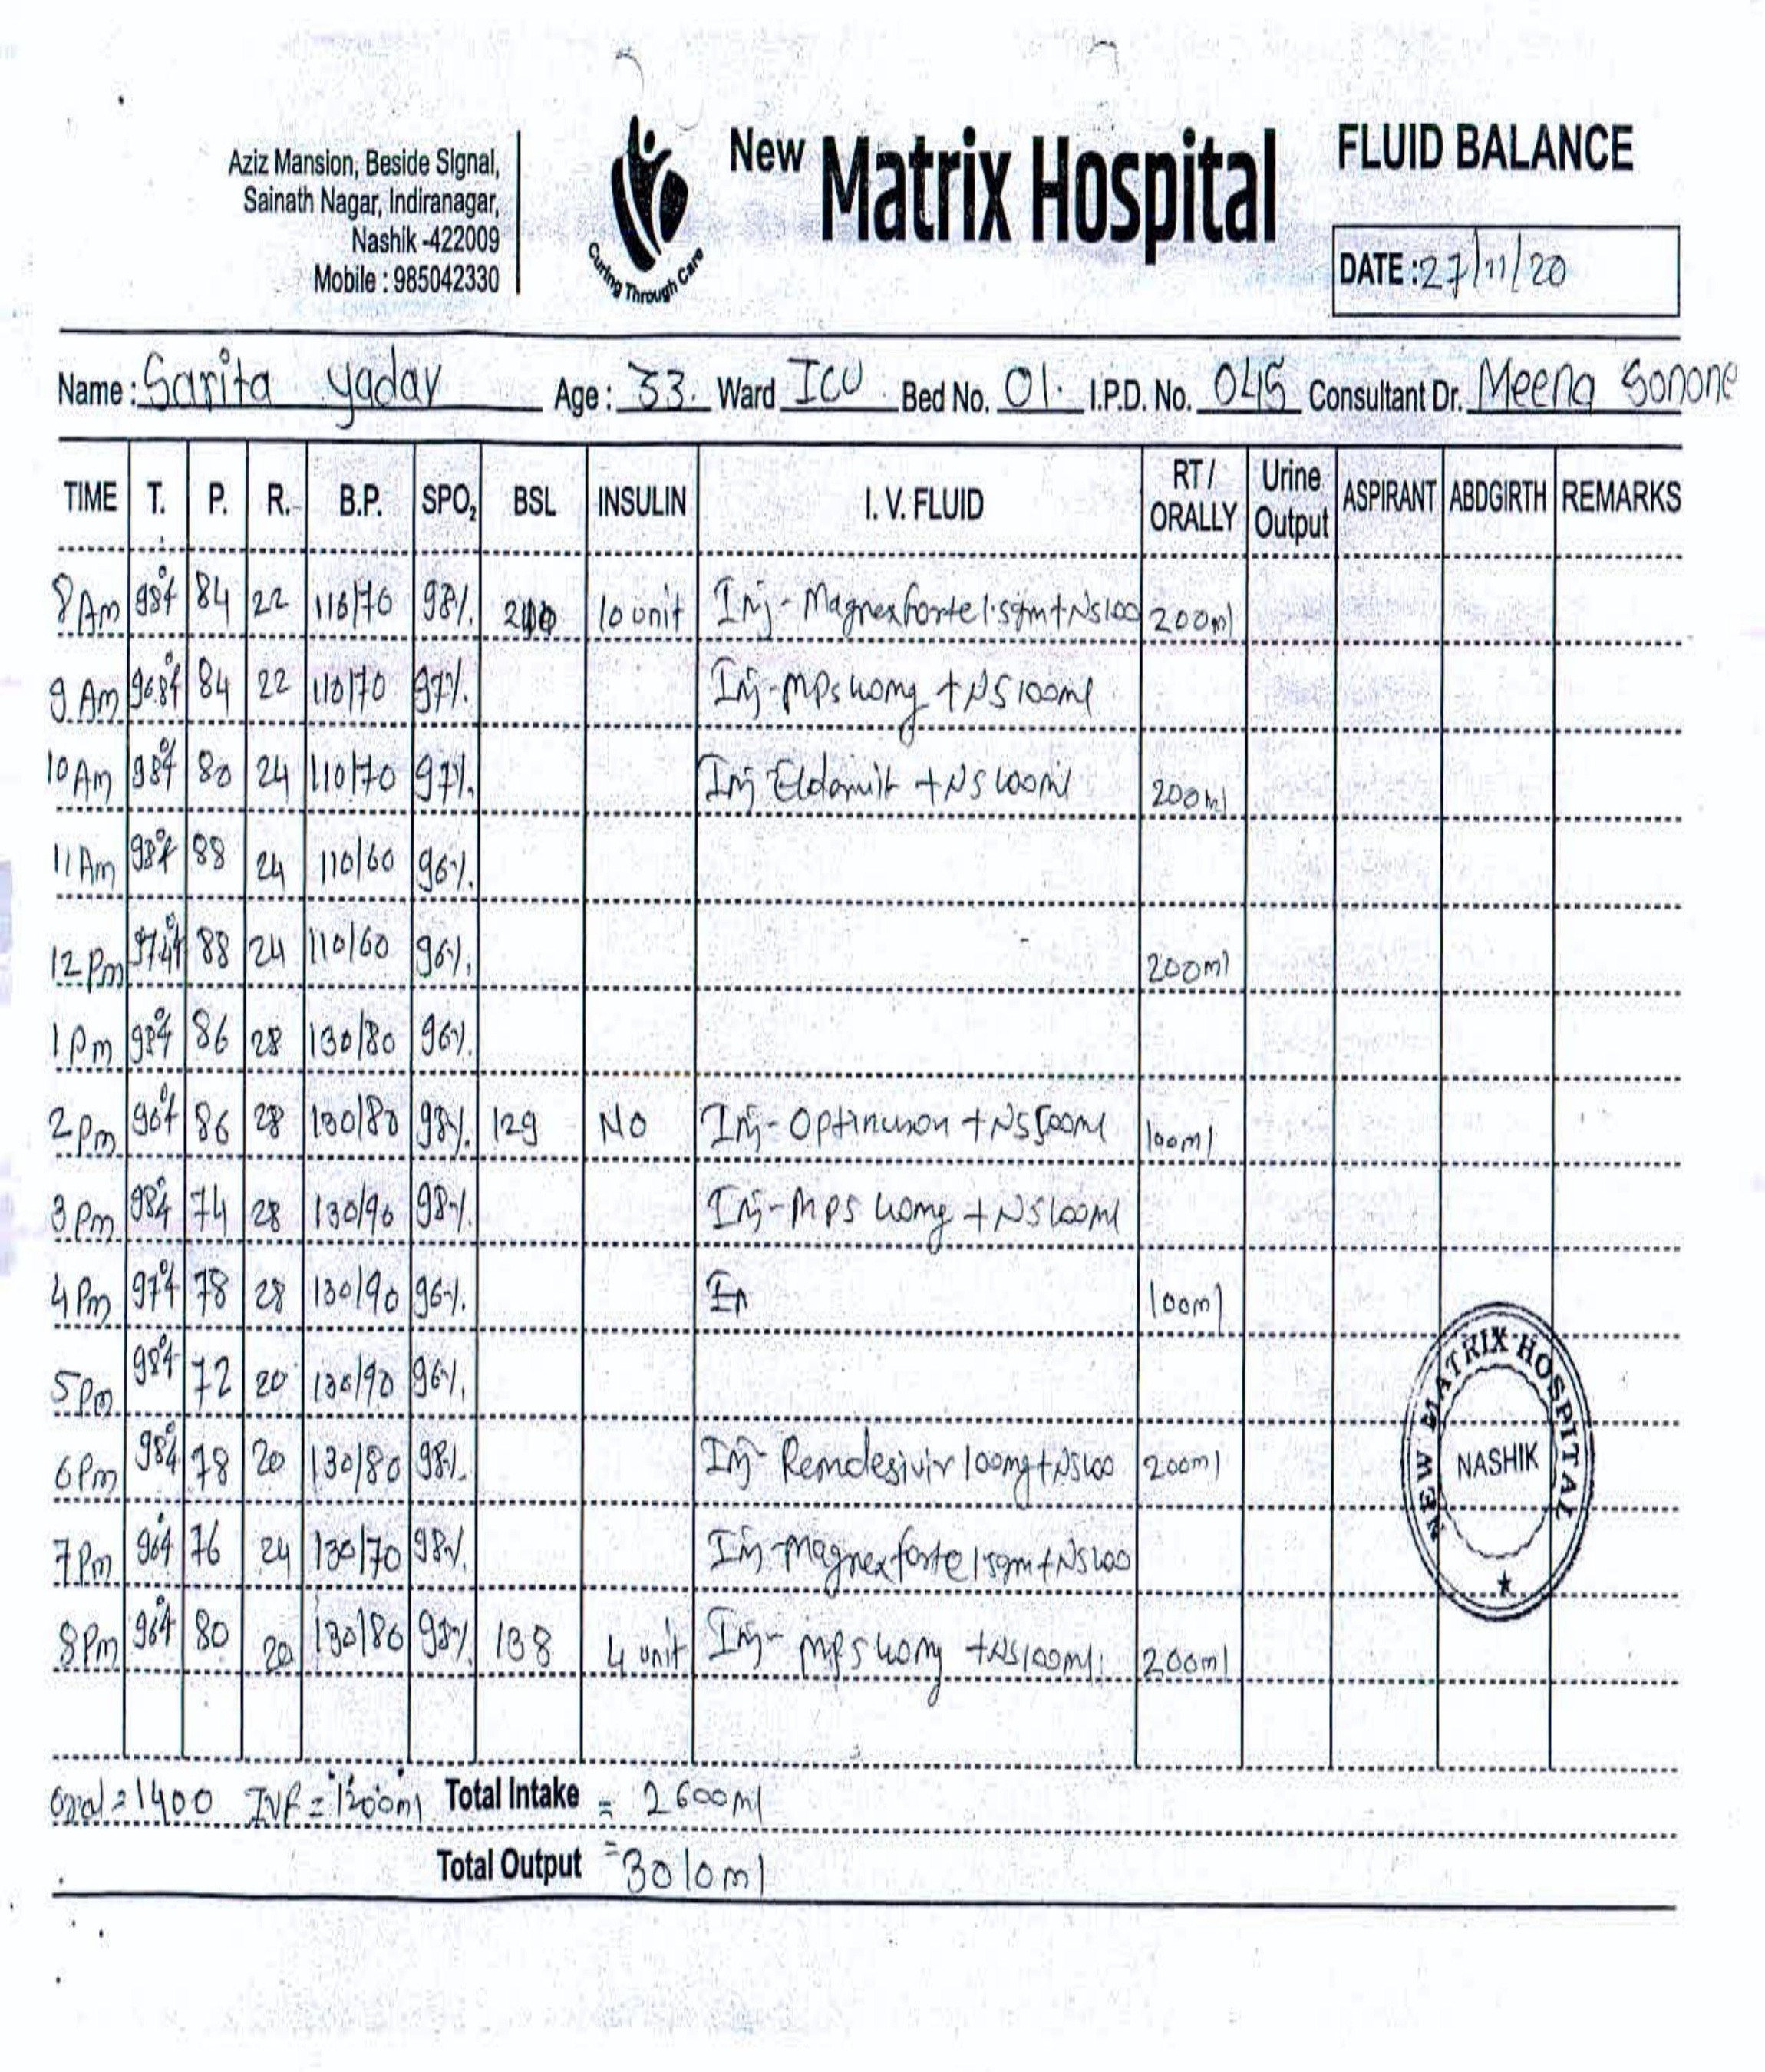 Aziz Mansion, Beside Signal,
Sainath Nagar, Indiranagar,
Nashik -422009
Mobile : 985042330
Curing Through Care
New Matrix Hospital
FLUID BALANCE
DATE : 27/11/20
Name : Sarita Yadav Age : 33. Ward ICU Bed No. 01. I.P.D. No. 045 Consultant Dr. Meena Sonone
TIME T. P. R. B.P. SPO₂ BSL INSULIN I. V. FLUID RT / ORALLY Urine Output ASPIRANT ABDGIRTH REMARKS
8 Am 98°f 84 22 110/70 98%. 10 unit Inj - Magnex forte 1.5gm + NS 100 200ml
9 Am 96.8°f 84 22 110/70 97%. Inj - MPS 40mg + NS 100ml
10 Am 98°f 80 24 110/70 97%. Inj + NS 100ml 200ml
11 Am 98°f 88 24 110/60 96%.
12 Pm 97.4°f 88 24 110/60 96%. 200ml
1 Pm 98°f 86 28 130/80 96%.
2 Pm 96°f 86 28 130/80 98%. 129 NO Inj - + NS 500ml 100ml
3 Pm 98°f 74 28 130/90 98%. Inj - MPS 40mg + NS 100ml
4 Pm 97°f 78 28 130/90 96%. In 100ml
5 Pm 98°f 72 20 130/90 96%.
6 Pm 98°f 78 20 130/80 98%. Inj - Remdesivir 100mg + NS 100 200ml
7 Pm 96°f 76 24 130/70 98%. Inj - Magnex forte 1.5gm + NS 100
8 Pm 96°f 80 20 130/80 98%. 138 4 unit Inj - MPS 40mg + NS 100ml. 200ml
NEW MATRIX HOSPITAL
NASHIK
Oral = 1400 IVF = 1200ml Total Intake = 2600ml
Total Output = 3010ml